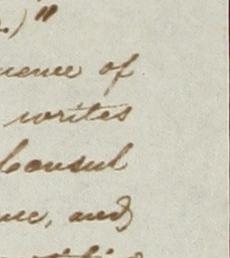 .)"
uence of
writes
Consul
nce, and